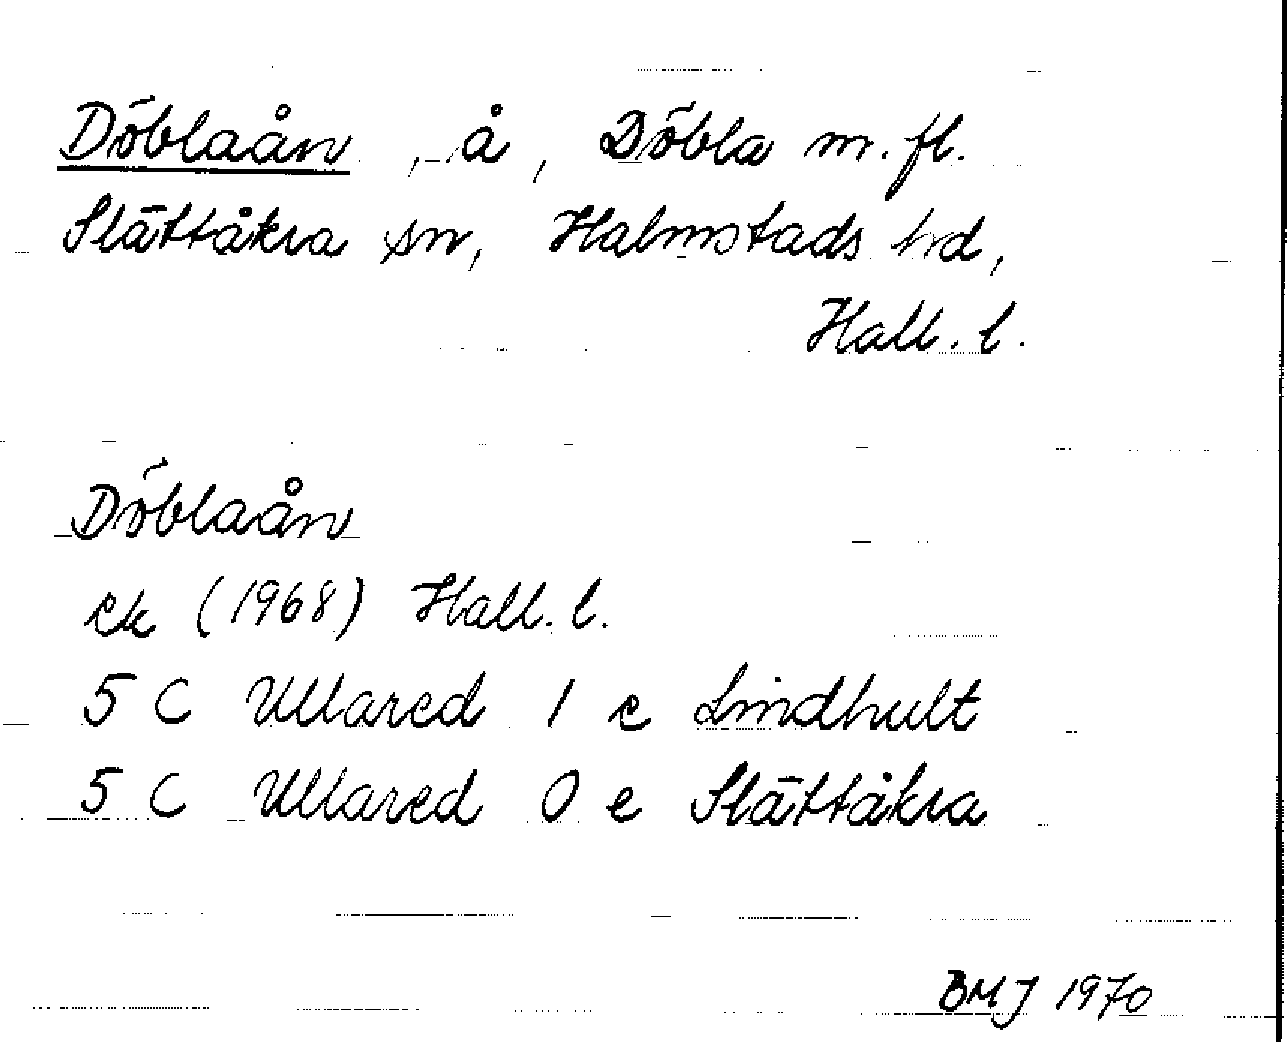 Döblaån, å, Döbla m.fl.
Slättåkra sn, Halmstads hd,
Hall. l.
Döblaån
ek (1968) Hall. l.
5 C Ullared 1 e Lindhult
5 C Ullared 0 e Slättåkra
BMJ 1970